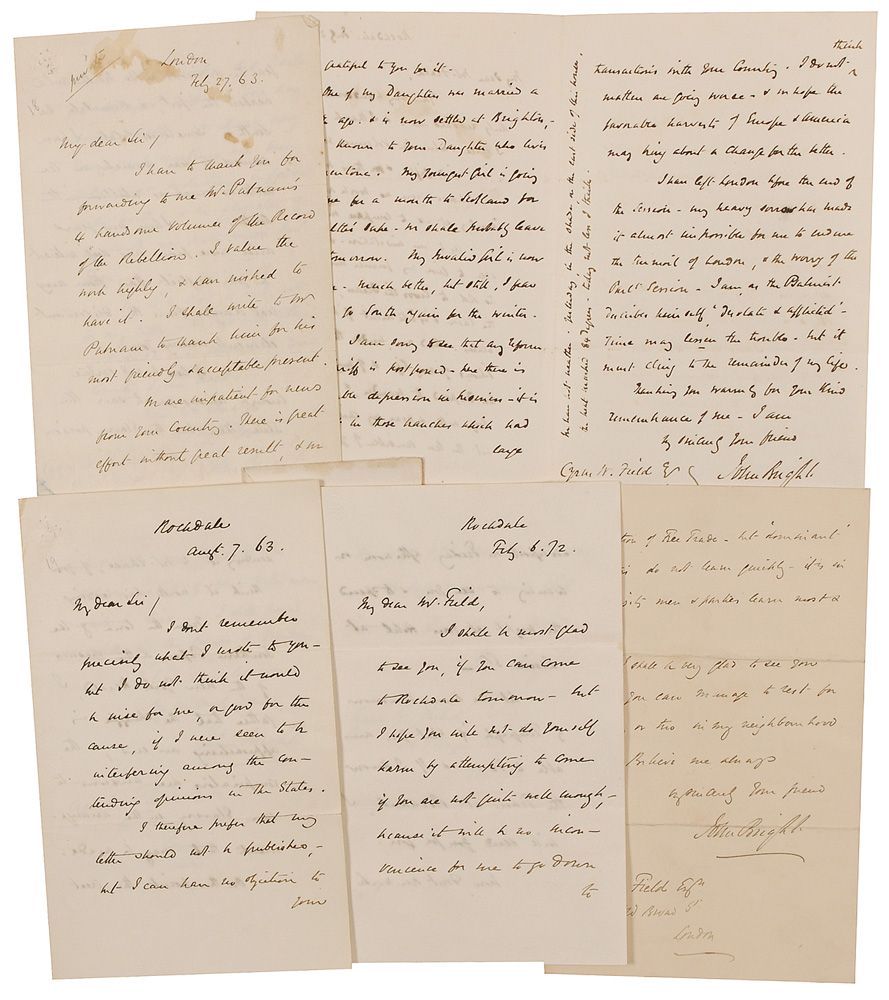 London
Feby 27. 63.
My dear Sir /
I have to thank you for
forwarding to me Mr. Putnam's
4 handsome volumes of the Record
of the Rebellion. I value the
work highly, & have wished to
have it. I shall write to Mr
Putnam to thank him for his
most friendly & acceptable present.
We are impatient for news
from your Country. There is great
effort without great result, & we
grateful to you for it -
One of my Daughters was married a
ago. & is now settled at Brighton, -
known to your Daughter who lives
Mentone. My youngest Girl is going
me for a month to Scotland for
sake - we shall probably leave
tomorrow. My Invalid Girl is now
- much better, but still, I fear
go South again for the winter.
I am sorry to see that any reform
tariff is postponed - for there is
depression in business - it is
in those branches which had
large
We have hot weather - yesterday in the shade on the east side of this house.
the heat reached 84 degrees - today not less I think.
think
transactions with your Country. I do not ^
matters are going worse - & we hope the
favorable harvests of Europe & America
may bring about a change for the better.
I have left London before the end of
the Session - my heavy sorrow has made
it almost impossible for me to endure
the turmoil of London, & the worry of the
Parlt. Session - I am, as the Psalmist
describes himself, "desolate & afflicted" -
Time may lessen the trouble - but it
must cling to the remainder of my life.
Thanking you warmly for your kind
remembrance of me - I am
very sincerely your friend
Cyrus W. Field Esq John Bright.
Rochdale
Augt. 7. 63.
My dear Sir /
I dont remember
precisely what I wrote to you -
but I do not think it would
be wise for me, or good for the
cause, if I were seen to be
interfering among the con-
tending opinions in the States.
I therefore prefer that my
letter should not be published, -
but I can have no objection to
your
Rochdale
Feby. 6. 72.
My dear Mr. Field,
I shall be most glad
to see you, if you can come
to Rochdale tomorrow - but
I hope you will not do yourself
harm by attempting to come
if you are not quite well enough, -
because it will be no incon-
venience for me to go down
to
of Free Trade - but "dominant"
do not learn quickly - it is in
men & parties learn most &
I shall be very glad to see you
you can manage to rest for
or two in my neighbourhood
Believe me always
very sincerely your friend
John Bright.
Field Esqr
Broad St
London